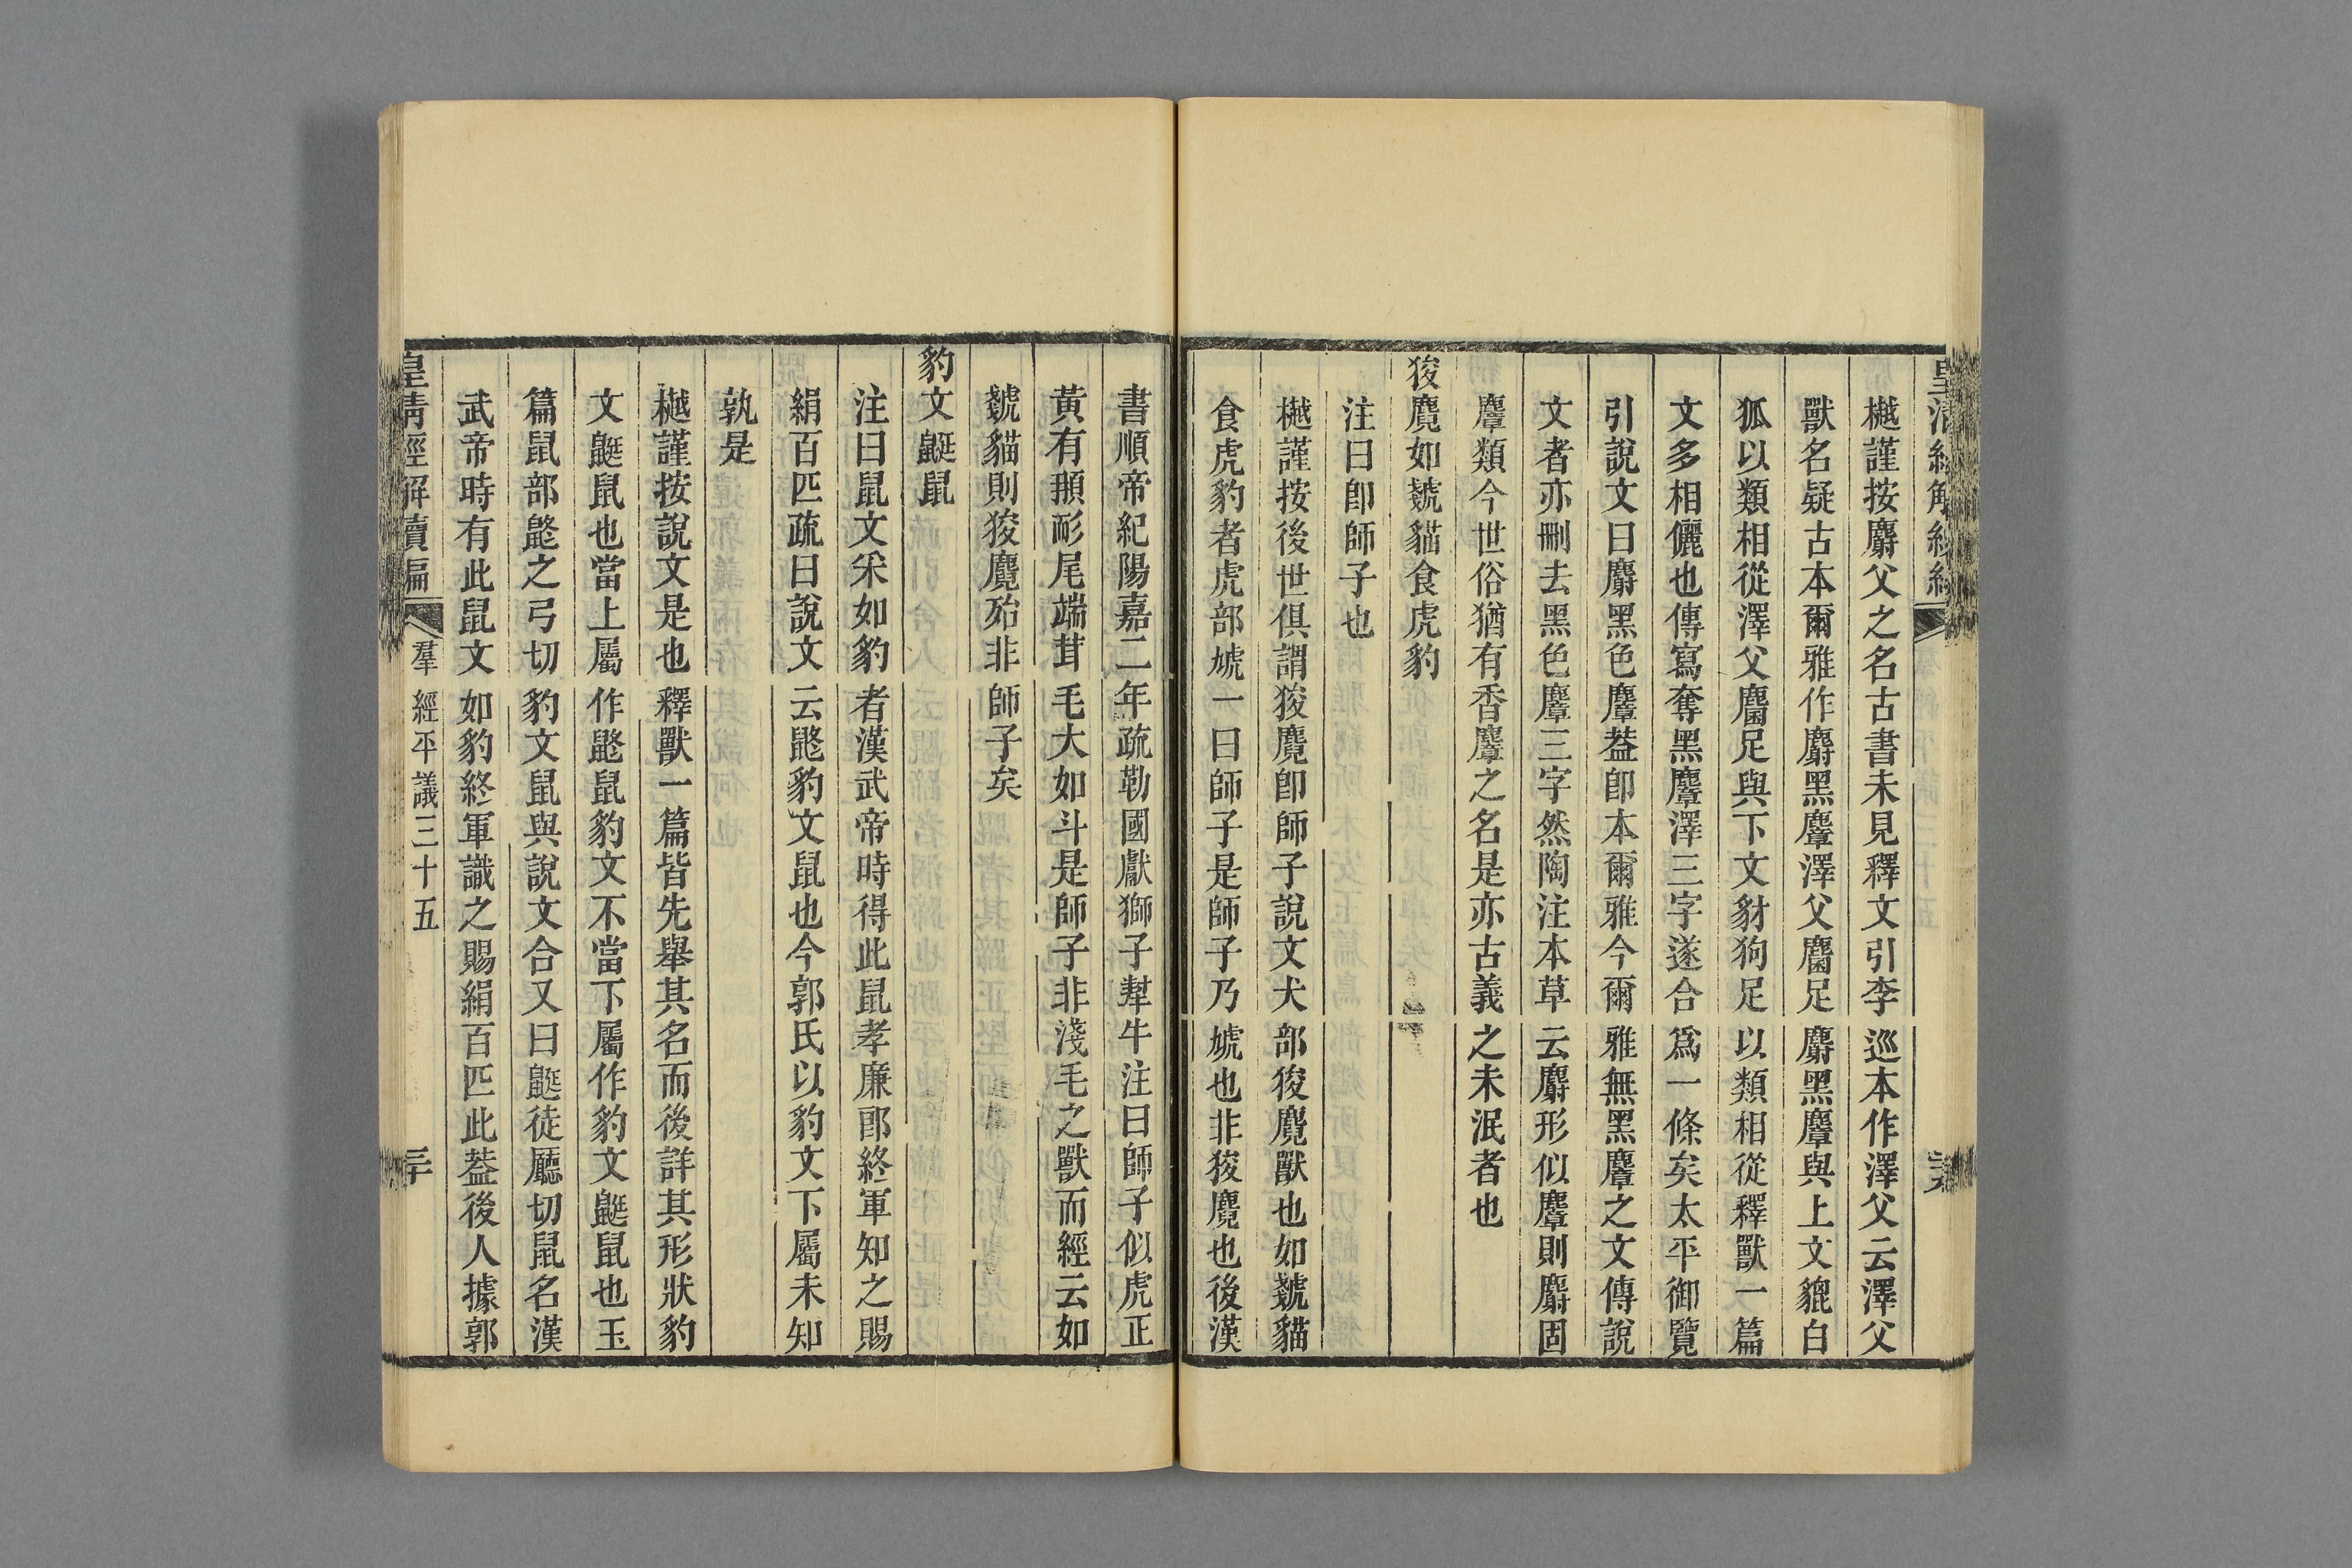 樾謹按麝父之名古書未見釋文引李巡本作澤父云澤父
獸名疑古本爾雅作麝黑麞澤父麕足麝黑麞與上文貔白
狐以類相從澤父麕足與下文豺狗足以類相從釋獸一篇
文多相儷也傳寫奪黑麞澤三字遂合爲一條矣太平御覽
引說文曰麝黑色麞葢卽本爾雅今爾雅無黑麞之文傳說
文者亦刪去黑色麞三字然陶注本草云麝形似麞則麝固
麞類今世俗猶有香麞之名是亦古義之未泯者也
狻麑如虦貓食虎豹
注曰卽師子也
樾謹按後世俱謂狻麑卽師子說文犬部狻麑獸也如虦貓
食虎豹者虎部虓一曰師子是師子乃虓也非狻麑也後漢
書順帝紀陽嘉二年疏勒國獻獅子犎牛注曰師子似虎正
黃有䫇耏尾端茸毛大如斗是師子非淺毛之獸而經云如
虦貓則狻麑殆非師子矣
豹文鼮鼠
注曰鼠文釆如豹者漢武帝時得此鼠孝廉郎終軍知之賜
絹百匹疏曰說文云鼨豹文鼠也今郭氏以豹文下屬未知
孰是
樾謹按說文是也釋獸一篇皆先舉其名而後詳其形狀豹
文鼮鼠也當上屬作鼨鼠豹文不當下屬作豹文鼮鼠也玉
篇鼠部鼨之弓切豹文鼠與說文合又曰鼮徒廳切鼠名漢
武帝時有此鼠文如豹終軍識之賜絹百匹此葢後人據郭
皇清經解續編
羣經平議三十五
三十